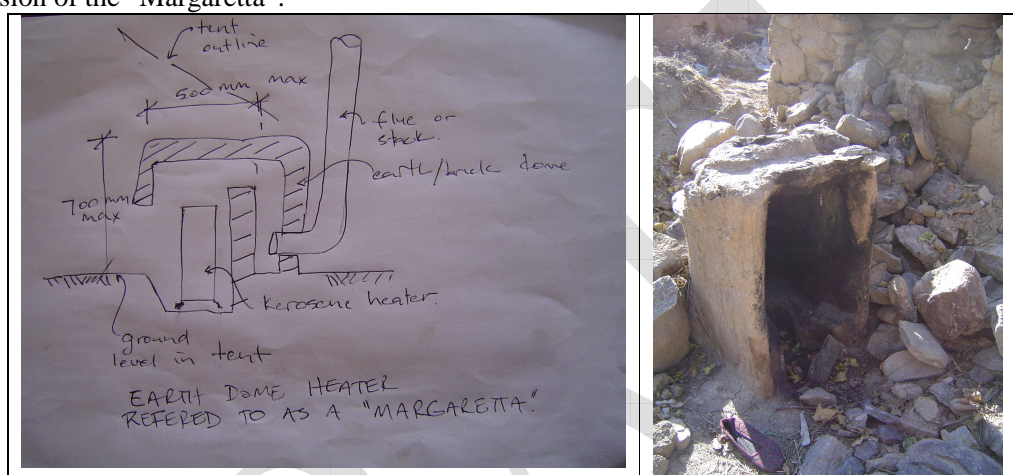 sion of the "Margaretta".
tent
outline
500 mm max
flue or
stack.
earth/brick dome
700 mm
max
Kerosene heater.
ground
level in tent
EARTH DOME HEATER
REFERED TO AS A "MARGARETTA."